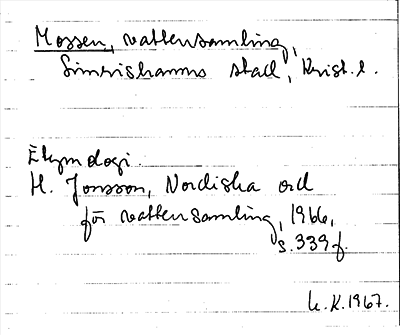 Mossen, vattensamling,
Simrishamns stad, Krist. l.
Etymologi
H. Jonsson, Nordiska ord
för vattensamling, 1966,
s. 339 f.
U.K. 1967.